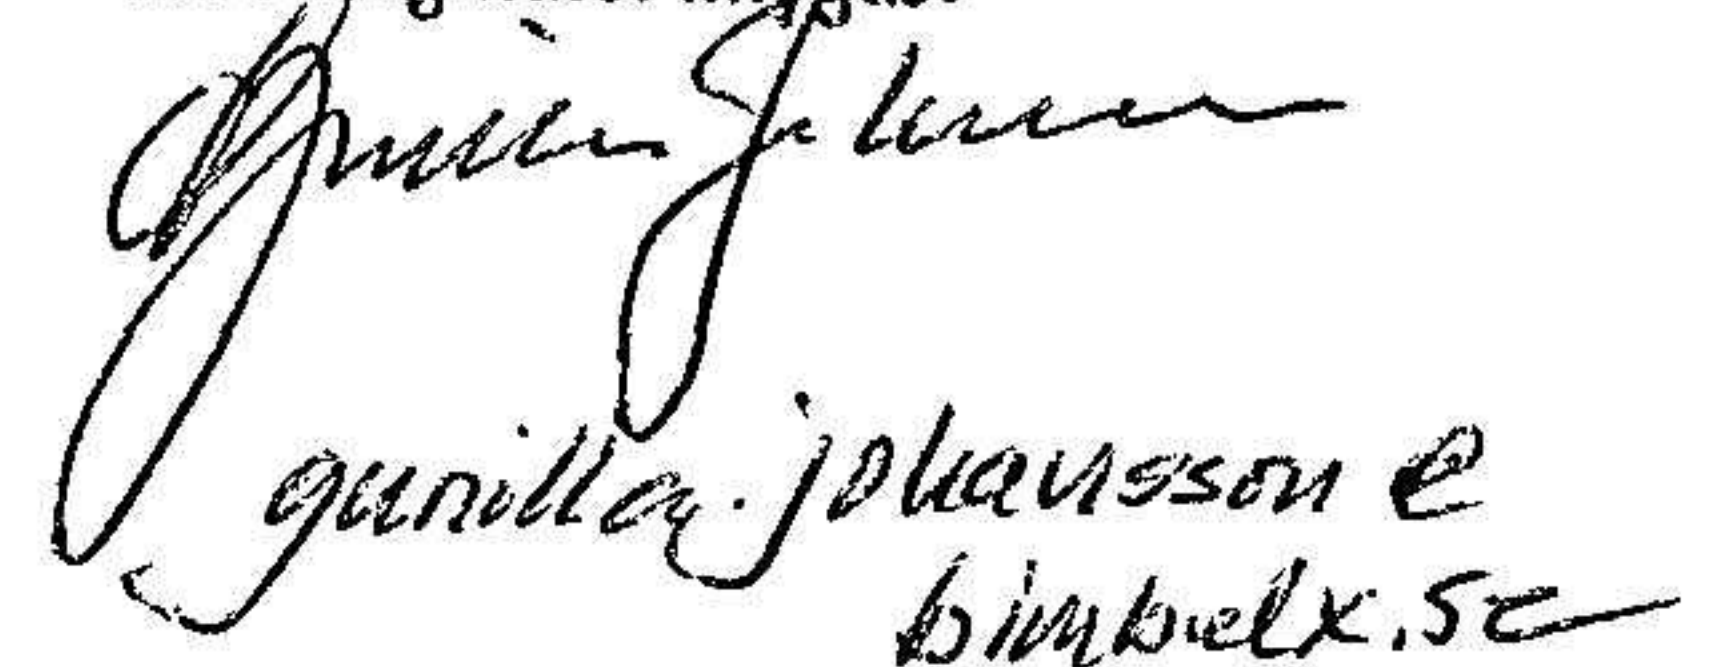 Gunilla Johansson
gunilla.johansson @
bimbelx.se